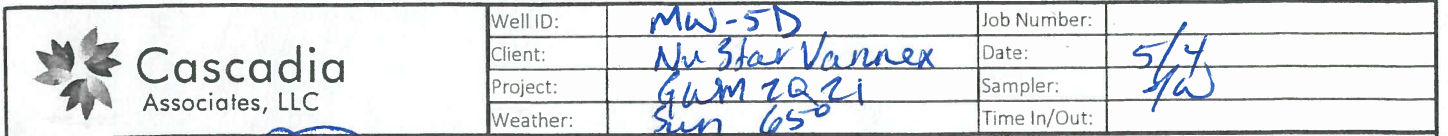 Cascadia
Associates, LLC
Well ID: MW-5D Job Number:
Client: NuStar Vannex Date: 5/4
Project: GWM 2Q21 Sampler:
Weather: Sun 65° Time In/Out: